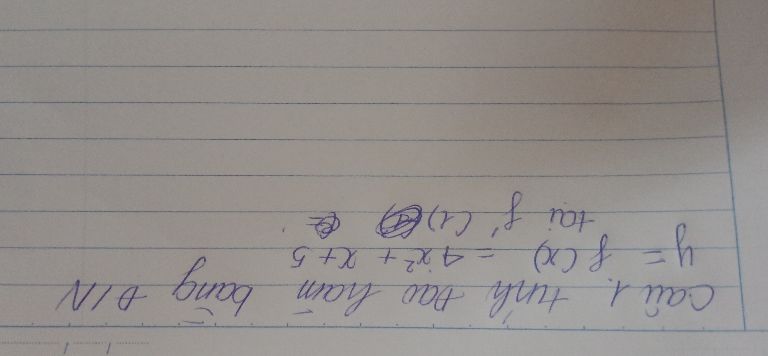 Câu 1. tính đạo hàm bằng Đ/N
y = f(x) = 4x² + x + 5
tại f'(1)